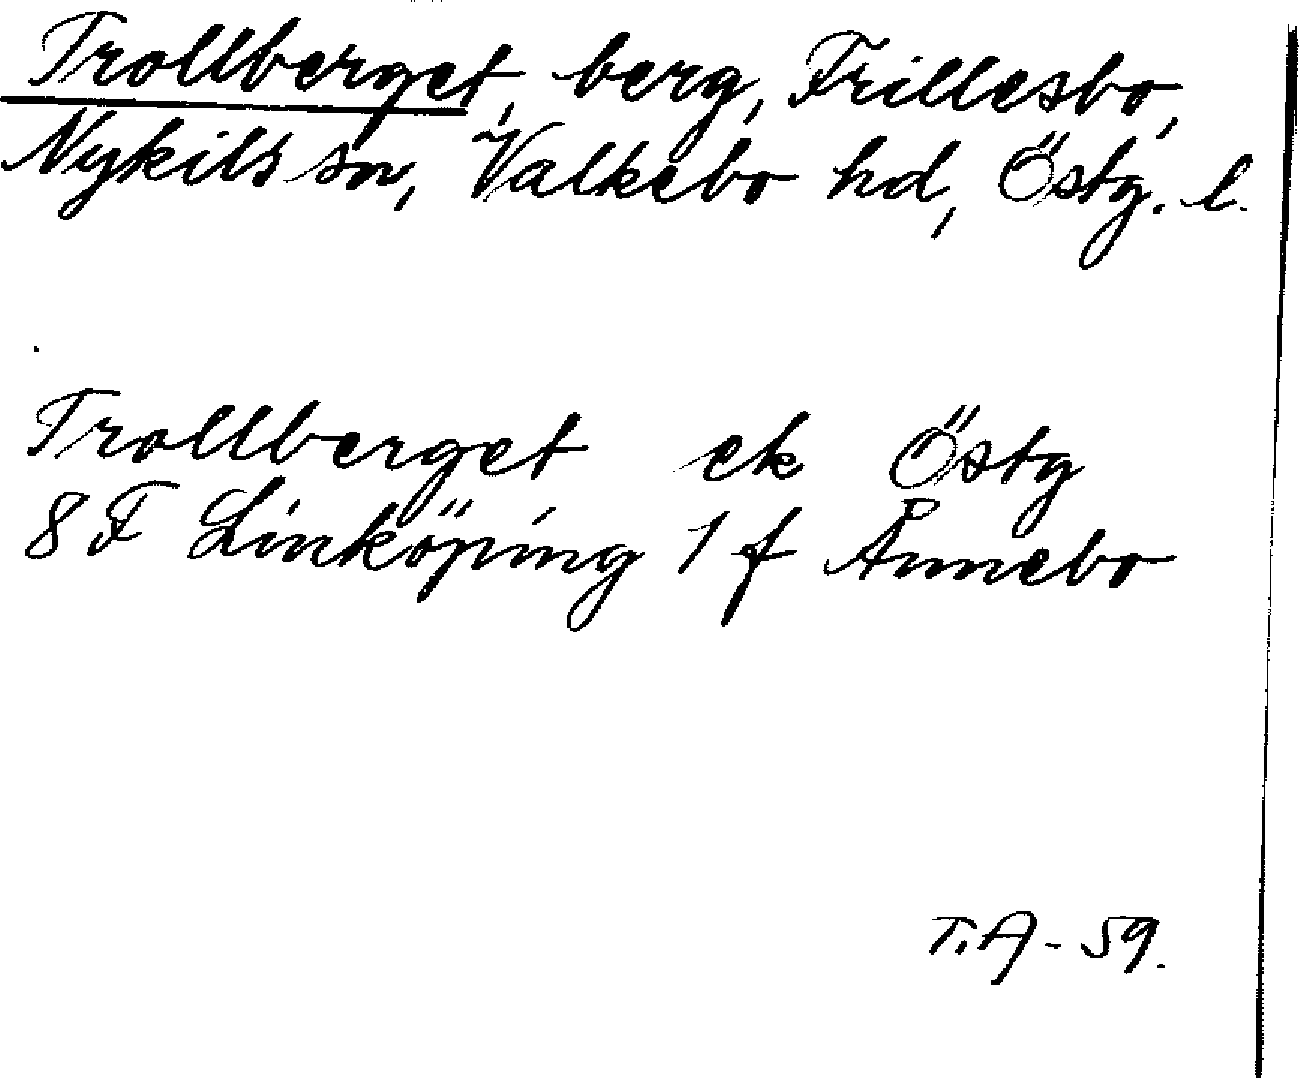 Trollberget, berg, Frillesbo,
Nykils sn, Valkebo hd, Östg. l.
Trollberget ek Östg
8F Linköping 1 f Ånnebo
T.A - 59.